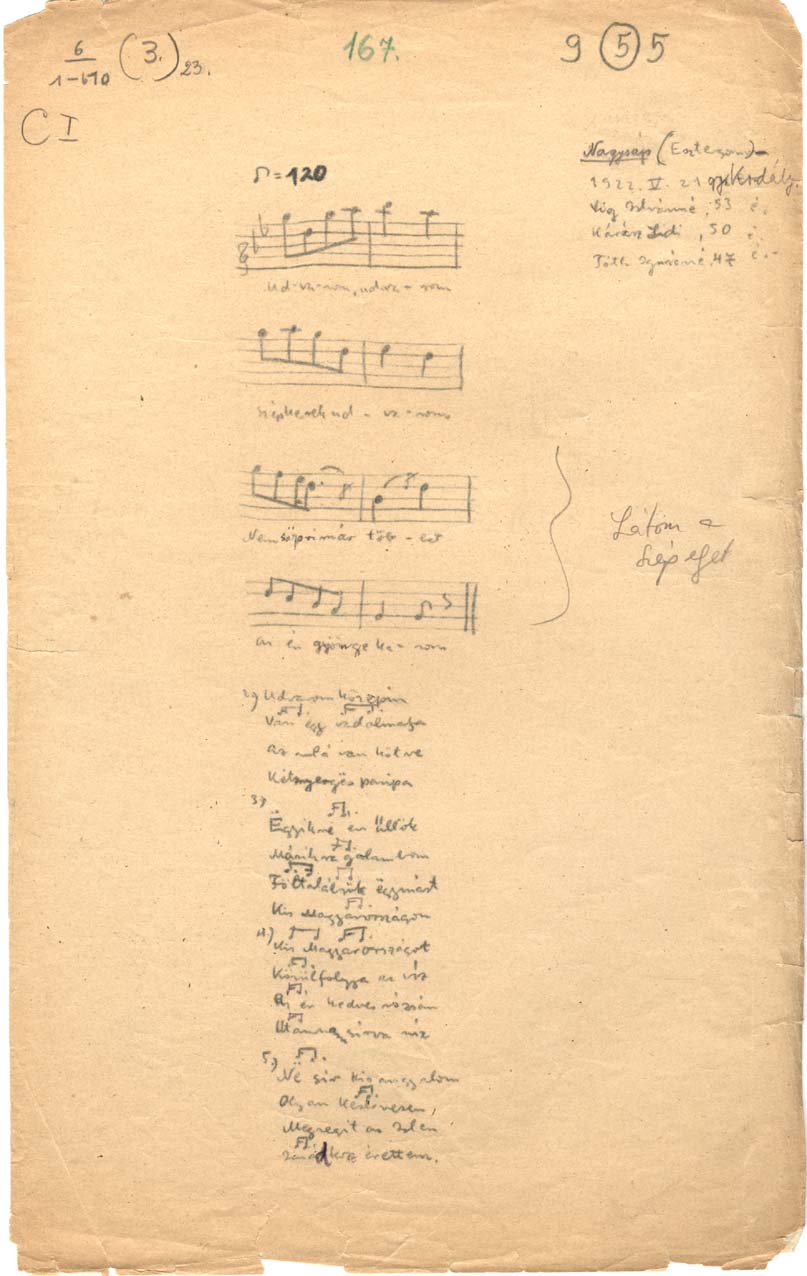 6
1-610
(3.) 23.
167.
9 (5) 5
C I
Nagysáp (Esztergom)
1922. V. 21 gy. Kerdély.
Víg Istvánné, 53 é.
Kárász Ludi, 50 é.
Tóth Ignácné, 47 é.
♫=120
Ud-va-rom, udva-rom
szépkerek ud-va-rom
Nem söpri már töb-bet
az én gyönge ka-rom
Látom a
szép eget
2) Udvarom közepin
Van égy vadalmafa
az alá van kötve
Kétnyergés paripa
3)
Éggyikre én üllök
Másikra galambom
Föltaláljuk ëggymást
Kis Magyarországon
4) Kis Magyarországot
Körülfolyja az víz
Az én kedves rózsám
Utánnam sírva níz
5)
Në sír kis angyalom
Olyan keservesen,
Megsegít az Isten
imádkoz érettem.